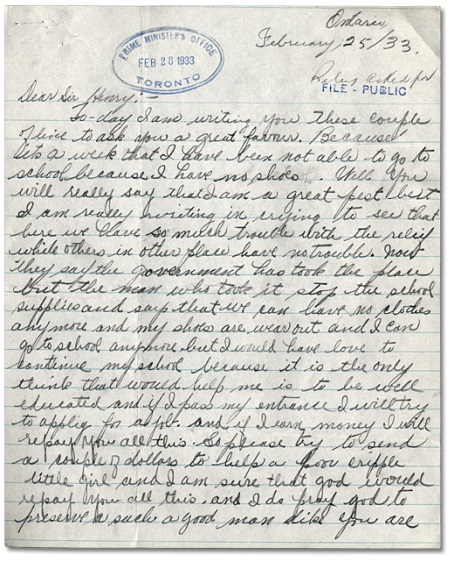 Ontario
February 25/33.
PRIME MINISTER'S OFFICE
FEB 28 1933
TORONTO
Relief asked for
FILE - PUBLIC
Dear Sir Henry:-
To-day I am writing you these couple
of line to ask you a great favour. Because
its a week that I have been not able to go to
school because I have no shoes. Well You
will really say that I am a great pest but
I am really writing in crying to see that
here we have so much trouble with the relif
while others in other place have no trouble. Now
They say the government has took the place
but the man who took it stop the school
supplies and says that we can have no clothes
anymore and my shoes are wear out and I can
go to school anymore but I would have love to
continue my school because it is the only
think that would help me is to be well
educated and if I pass my entrance I will try
to applie for a job. and if I earn money I will
repay you all this. So please try to send
a couple of dollars to help a poor cripple
little girl and I am sure that god would
repay you all this. and I do pray god to
preserve a such a good man like you are